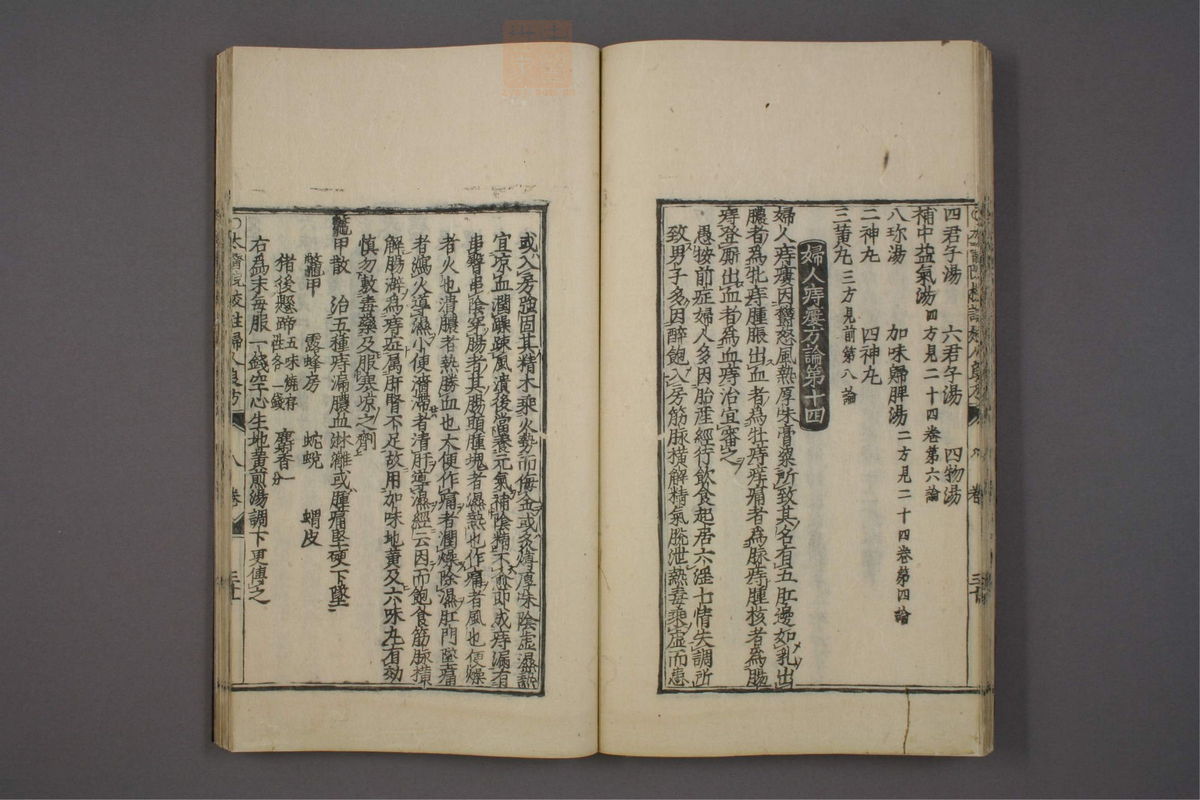 四君子湯　六君子湯　四物湯
補中益氣湯四方見二十四卷第六論
八珎湯　加味歸脾湯二方見二十四卷第四論
二神丸　四神丸
三黃丸三方見前第八論
婦人痔瘻方論第十四
婦人痔瘻因鬱怒風熱厚味膏粱所致其名有五肛邊如乳出
膿者爲牝痔腫脹出血者爲牡痔痔痛者爲脉痔腫核者爲腸
痔登厠出血者爲血痔治宜審之
愚按前症婦人多因胎產經行飲食起居六淫七情失調所
致男子多因醉飽入房筋脉橫解精氣脫泄熱毒乘虛而患
或入房強固其精木乘火勢而侮金或炙煿厚味陰虛濕熱
宜凉血潤躁疎風潰後當養元氣補陰精不愈即成痔漏有
串臀串陰穿腸者其腸頭腫塊者濕熱也作痛者風也便燥
者火也潰膿者熱勝血也大便作痛者潤燥除濕肛門墜痛
者瀉火導濕小便濇滯者清肝導濕經云因而飽食筋脉橫
解腸澼爲痔症属肝腎不足故用加味地黃及六味丸有効
慎勿敷毒藥及服寒凉之劑
鼈甲散　治五種痔漏膿血淋漓或腫痛堅硬下墜
鼈甲　露蜂房　蛇蛻　蝟皮
猪後懸蹄五味燒存性各一錢　麝香一分
右爲末每服一錢空心生地黃煎湯調下更傅之
太醫院校註婦人良方　八卷　三十一